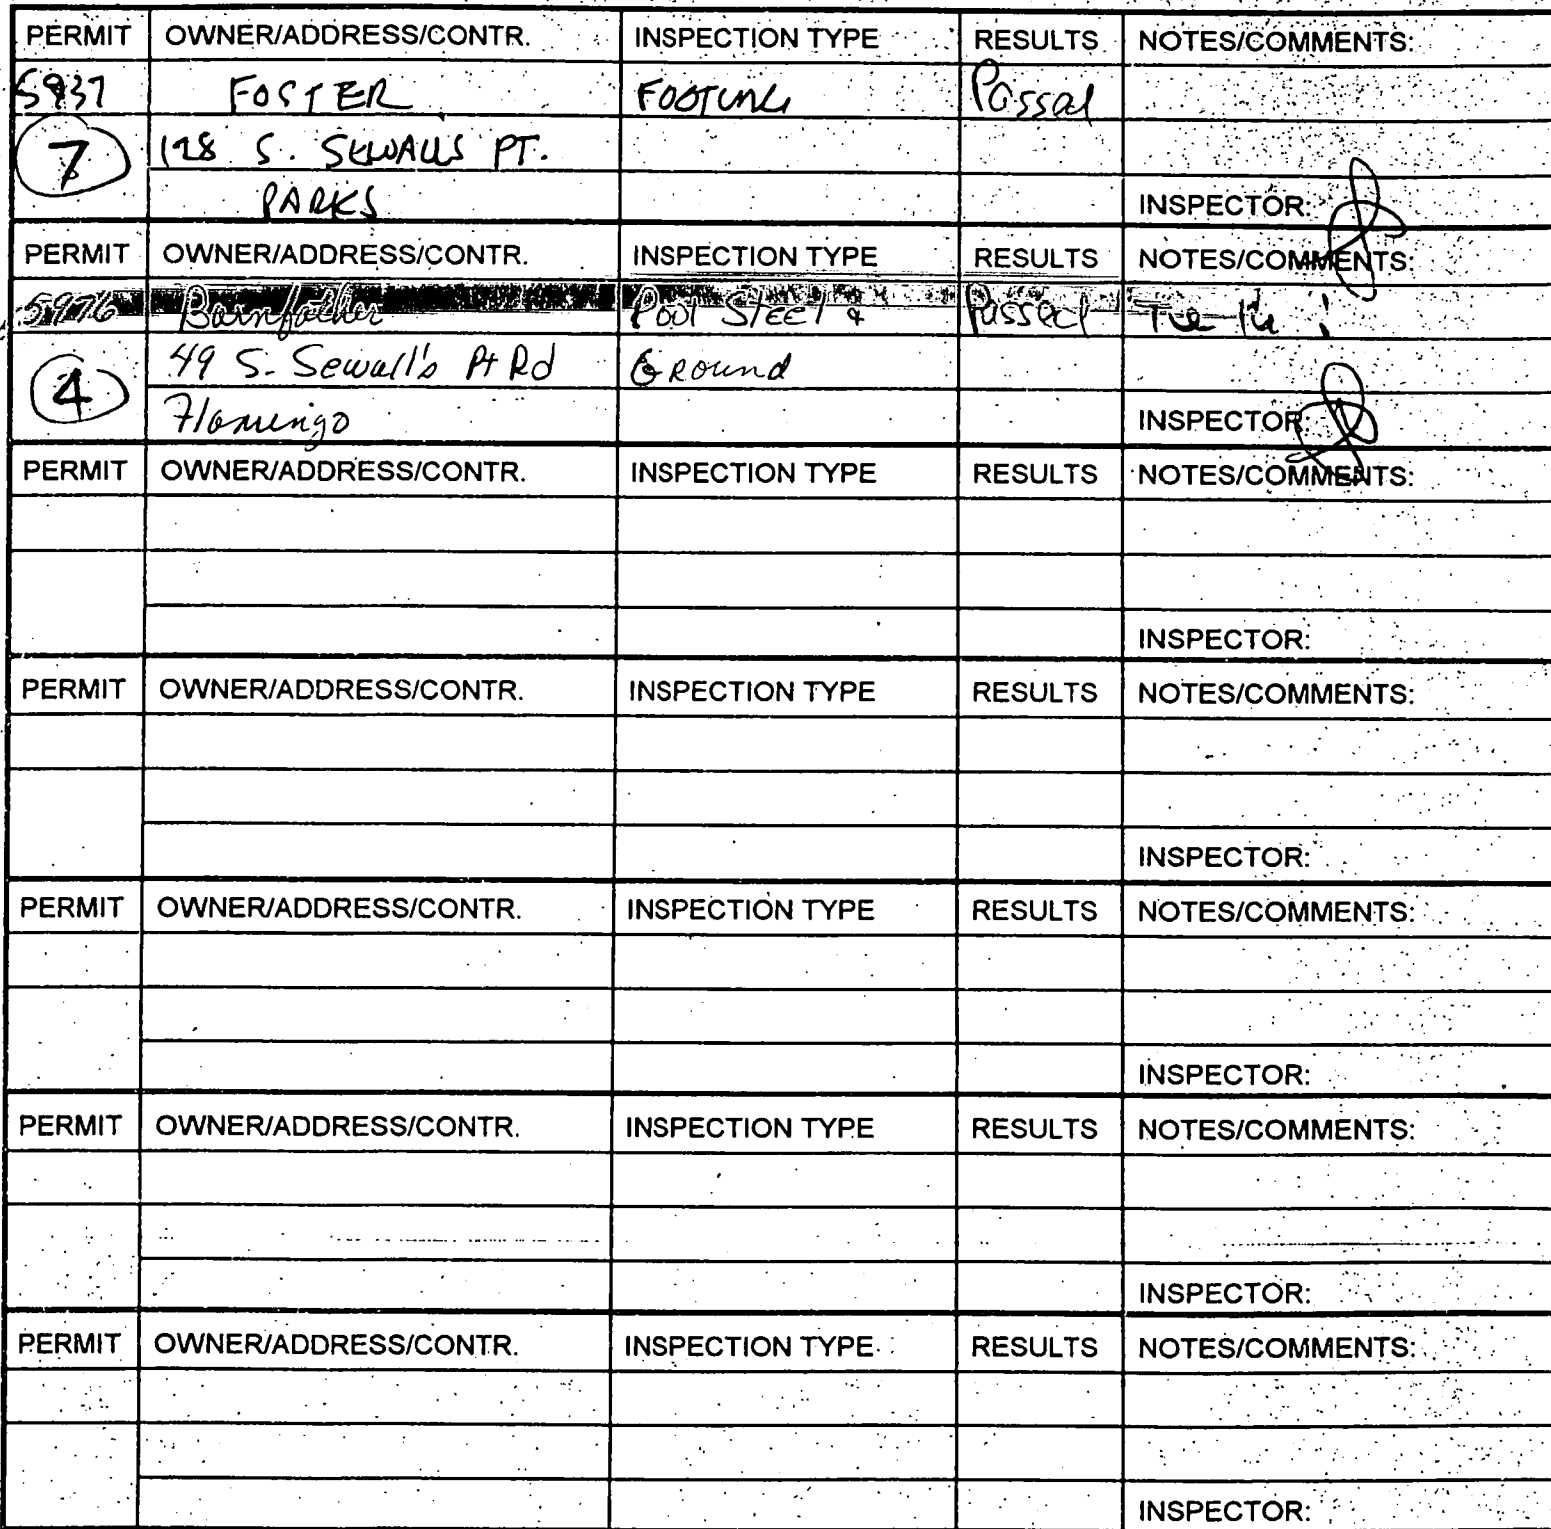 PERMIT OWNER/ADDRESS/CONTR. INSPECTION TYPE RESULTS NOTES/COMMENTS:
5937 FOSTER FOOTING Passed
7 128 S. SEWALLS PT.
PARKS INSPECTOR:
PERMIT OWNER/ADDRESS/CONTR. INSPECTION TYPE RESULTS NOTES/COMMENTS:
5976 Barnfather Pool Steel & Passed
4 49 S. Sewall's Pt Rd Ground
Flamingo INSPECTOR:
PERMIT OWNER/ADDRESS/CONTR. INSPECTION TYPE RESULTS NOTES/COMMENTS:
INSPECTOR:
PERMIT OWNER/ADDRESS/CONTR. INSPECTION TYPE RESULTS NOTES/COMMENTS:
INSPECTOR:
PERMIT OWNER/ADDRESS/CONTR. INSPECTION TYPE RESULTS NOTES/COMMENTS:
INSPECTOR:
PERMIT OWNER/ADDRESS/CONTR. INSPECTION TYPE RESULTS NOTES/COMMENTS:
INSPECTOR:
PERMIT OWNER/ADDRESS/CONTR. INSPECTION TYPE RESULTS NOTES/COMMENTS:
INSPECTOR: